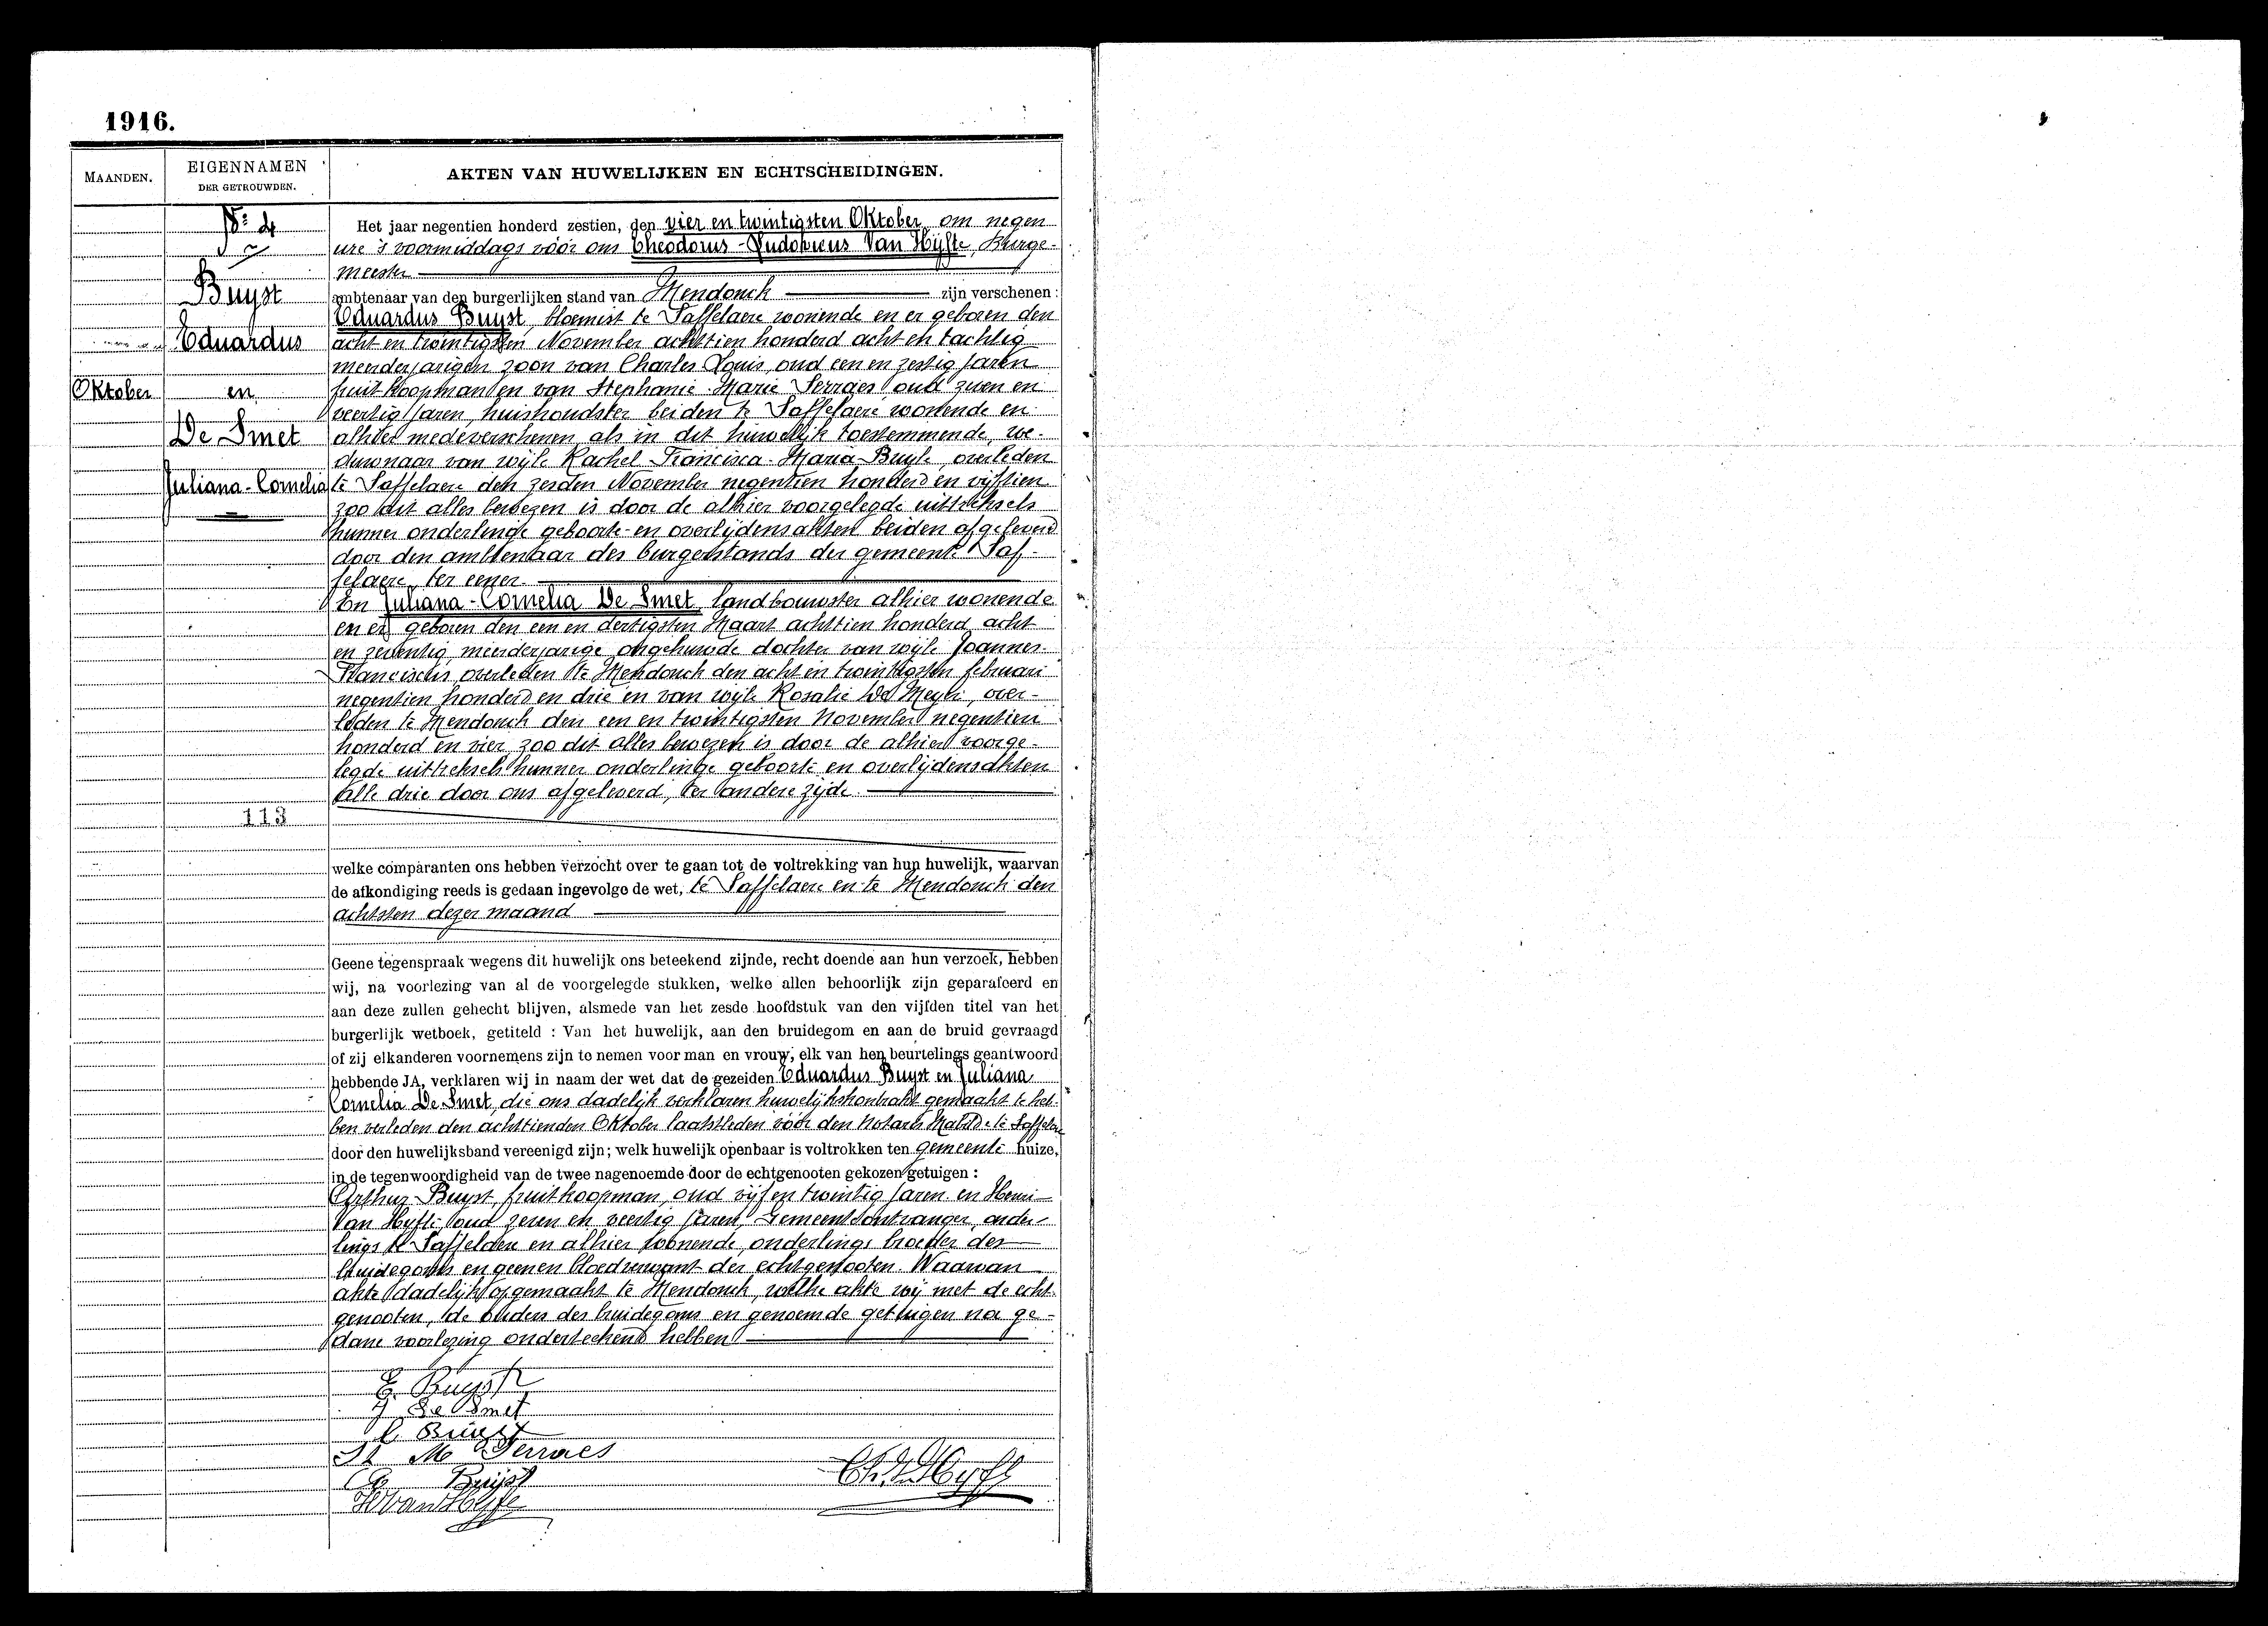 1916.
MAANDEN.
EIGENNAMEN
DER GETROUWDEN.
AKTEN VAN HUWELIJKEN EN ECHTSCHEIDINGEN.
N: 4
Buyst
Eduardus
Oktober
en
De Smet
Juliana-Cornelia
113
Het jaar negentien honderd zestien, den vier en twintigsten Oktober om negen
ure 's voormiddags vóór ons Theodorus-Ludovicus Van Hijfte, Burge-
meester
ambtenaar van den burgerlijken stand van Mendonck zijn verschenen :
Eduardus Buyst, bloemist te Saffelaere wonende en er geboren den
acht en twintigsten November achttien honderd acht en tachtig
meerderjarigen zoon van Charles Louis, oud een en zestig jaren
fruitkoopman en van Stephanie-Marie Serraes oud zeven en
veertig jaren, huishoudster beiden te Saffelaere wonende en
alhier medeverschenen, als in dit huwelijk toestemmende, we-
duwnaar van wijle Rachel-Francisca-Maria-Buyle, overleden
te Saffelaere den zesden November negentien honderd en vijftien
zoo dit alles bewezen is door de alhier voorgelegde uittreksels
hunner onderlinge geboorte- en overlijdensakten beiden afgeleverd
door den ambtenaar des burgerstands der gemeente Saf-
felaere, ter eener.
En Juliana-Cornelia De Smet, landbouwster alhier wonende
en er geboren den een en dertigsten Maart achttien honderd acht
en zeventig, meerderjarige ongehuwde dochter van wijle Joannes-
Franciscus, overleden te Mendonck den acht en twintigsten februari
negentien honderd en drie en van wijle Rosalie De Meyer, over-
leden te Mendonck den een en twintigsten November negentien
honderd en vier, zoo dit alles bewezen is door de alhier voorge-
legde uittreksels hunner onderlinge geboorte en overlijdensakten
alle drie door ons afgeleverd, ter andere zijde.
welke comparanten ons hebben verzocht over te gaan tot de voltrekking van hun huwelijk, waarvan
de afkondiging reeds is gedaan ingevolge de wet, te Saffelaere en te Mendonck den
achtsten dezer maand
Geene tegenspraak wegens dit huwelijk ons beteekend zijnde, recht doende aan hun verzoek, hebben
wij, na voorlezing van al de voorgelegde stukken, welke allen behoorlijk zijn geparafeerd en
aan deze zullen gehecht blijven, alsmede van het zesde hoofdstuk van den vijfden titel van het
burgerlijk wetboek, getiteld : Van het huwelijk, aan den bruidegom en aan de bruid gevraagd
of zij elkanderen voornemens zijn te nemen voor man en vrouw; elk van hen beurtelings geantwoord
hebbende JA, verklaren wij in naam der wet dat de gezeiden Eduardus Buyst en Juliana
Cornelia De Smet, die ons dadelijk verklaren huwelijkskontrakt gemaakt te heb-
ben verleden den achttienden Oktober laatstleden vóór den Notaris te Saffelaere
door den huwelijksband vereenigd zijn; welk huwelijk openbaar is voltrokken ten gemeente huize,
in de tegenwoordigheid van de twee nagenoemde door de echtgenooten gekozen getuigen :
Arthur Buyst, fruitkoopman, oud vijf en twintig jaren en Henri
Van Hyfte, oud zeven en veertig jaren, Gemeentontvanger, onder-
lings te Saffelaere en alhier wonende, onderlings broeder des
bruidegoms en geenen bloedverwant der echtgenooten. Waarvan
akte dadelijk opgemaakt te Mendonck, welke akte wij met de echt-
genooten, de ouders des bruidegoms en genoemde getuigen na ge-
dane voorlezing onderteekend hebben
E. Buyst
J De Smet
C. Buyst
St M Serraes
A Buijst
H Van Hyfte